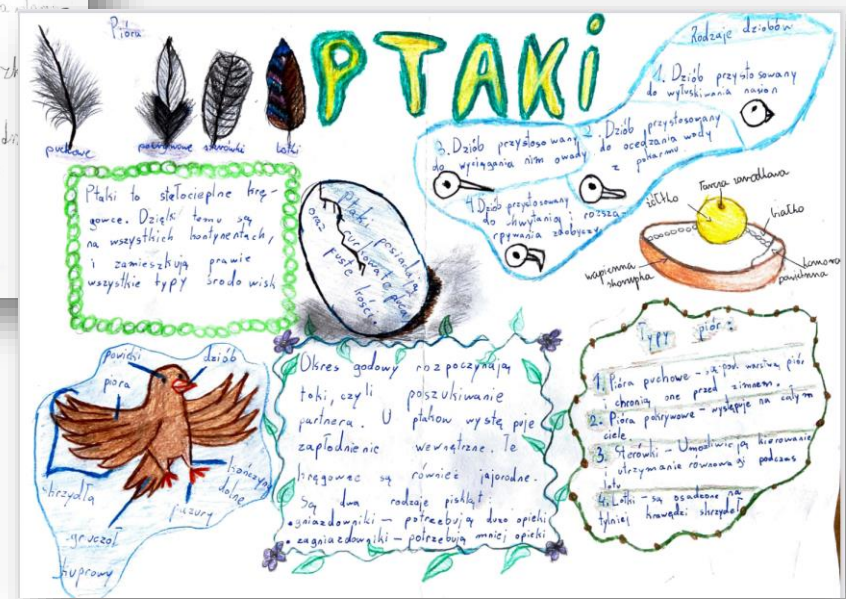 Pióra
puchowe
pokrywowe
sterówki
Lotki
PTAKI
Rodzaje dziobów
1. Dziób przystosowany
do wyłuskiwania nasion
2. Dziób przystosowany
do ocedzania wody
z pokarmu
3. Dziób przystosowany
do wyciągania nim owady
4. Dziób przystosowany
do chwytania i rozsza-
rpywania zdobyczy
Ptaki to stełocieplne krę-
gowce. Dzięki temu są
na wszystkich kontynentach,
i zamieszkują prawie
wszystkie typy środowisk
Ptaki posiadają
oraz puste kości
żółtko
tarcza zarodkowa
białko
komora
powietrzna
wapienna
skorupka
powieki
dziób
pióra
skrzydła
kończyny
dolne
pazury
gruczoł
kuprowy
Okres godowy rozpoczynają
toki, czyli poszukiwanie
partnera. U ptakow występuje
zapłodnienie wewnętrzne. Te
kręgowce są również jajorodne.
Są dwa rodzaje piskląt:
• gniazdowniki – potrzebują dużo opieki
• zagniazdowniki – potrzebują mniej opieki
Typy piór:
1. Pióra puchowe – są pod warstwą piór,
i chronią one przed zimnem.
2. Pióra pokrywowe – występuje na całym
ciele.
3. Sterówki – Umożliwiają kierowanie
i utrzymanie równowagi podczas
lotu
4. Lotki – są osadzone na
tylniej krawędzi skrzydeł